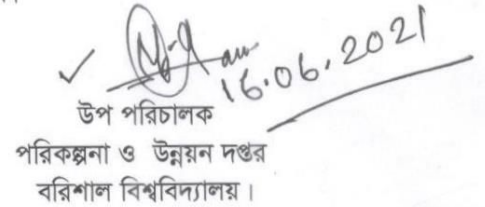 16.06.2021
উপ পরিচালক
পরিকল্পনা ও উন্নয়ন দপ্তর
বরিশাল বিশ্ববিদ্যালয়।